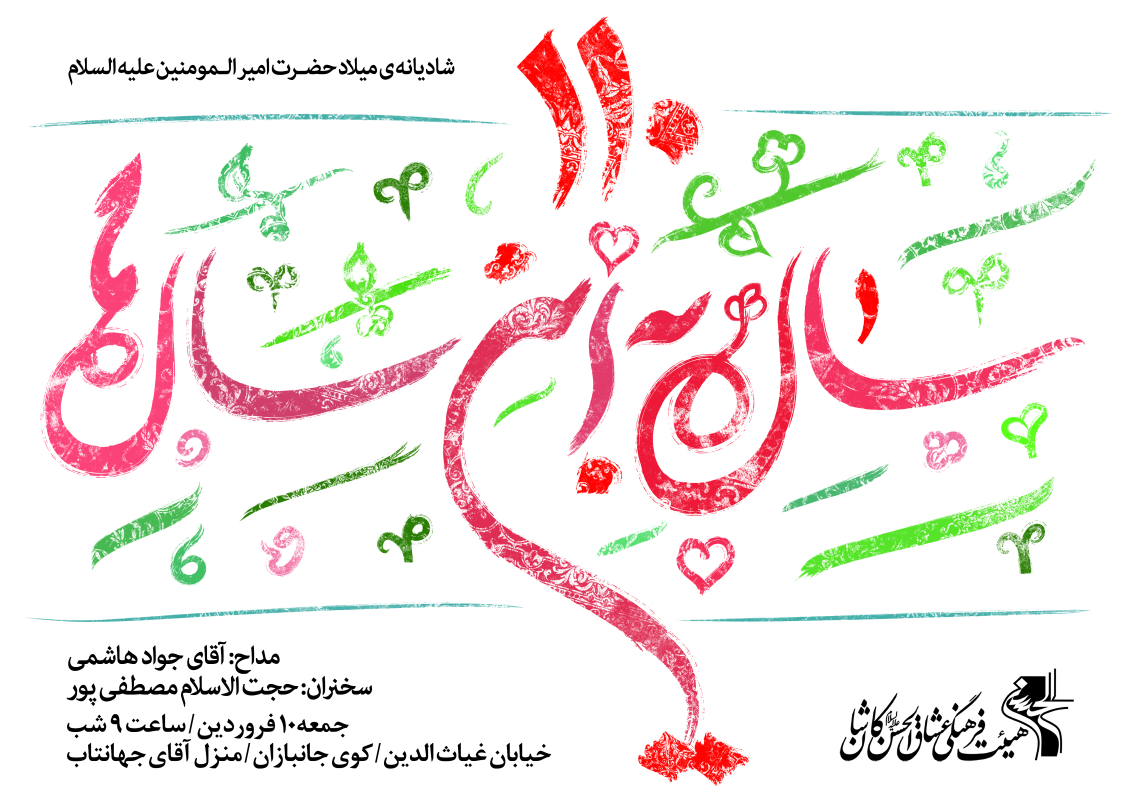 شادیانه‌ی میلاد حضرت امیر المومنین علیه السلام
۱۱۰
سال به این سال‌ها
مداح: آقای جواد هاشمی
سخنران: حجت الاسلام مصطفی پور
جمعه ۱۰ فروردین / ساعت ۹ شب
خیابان غیاث الدین / کوی جانبازان / منزل آقای جهانتاب
هیئت فرهنگی عشاق الحسین علیه السلام کاشان